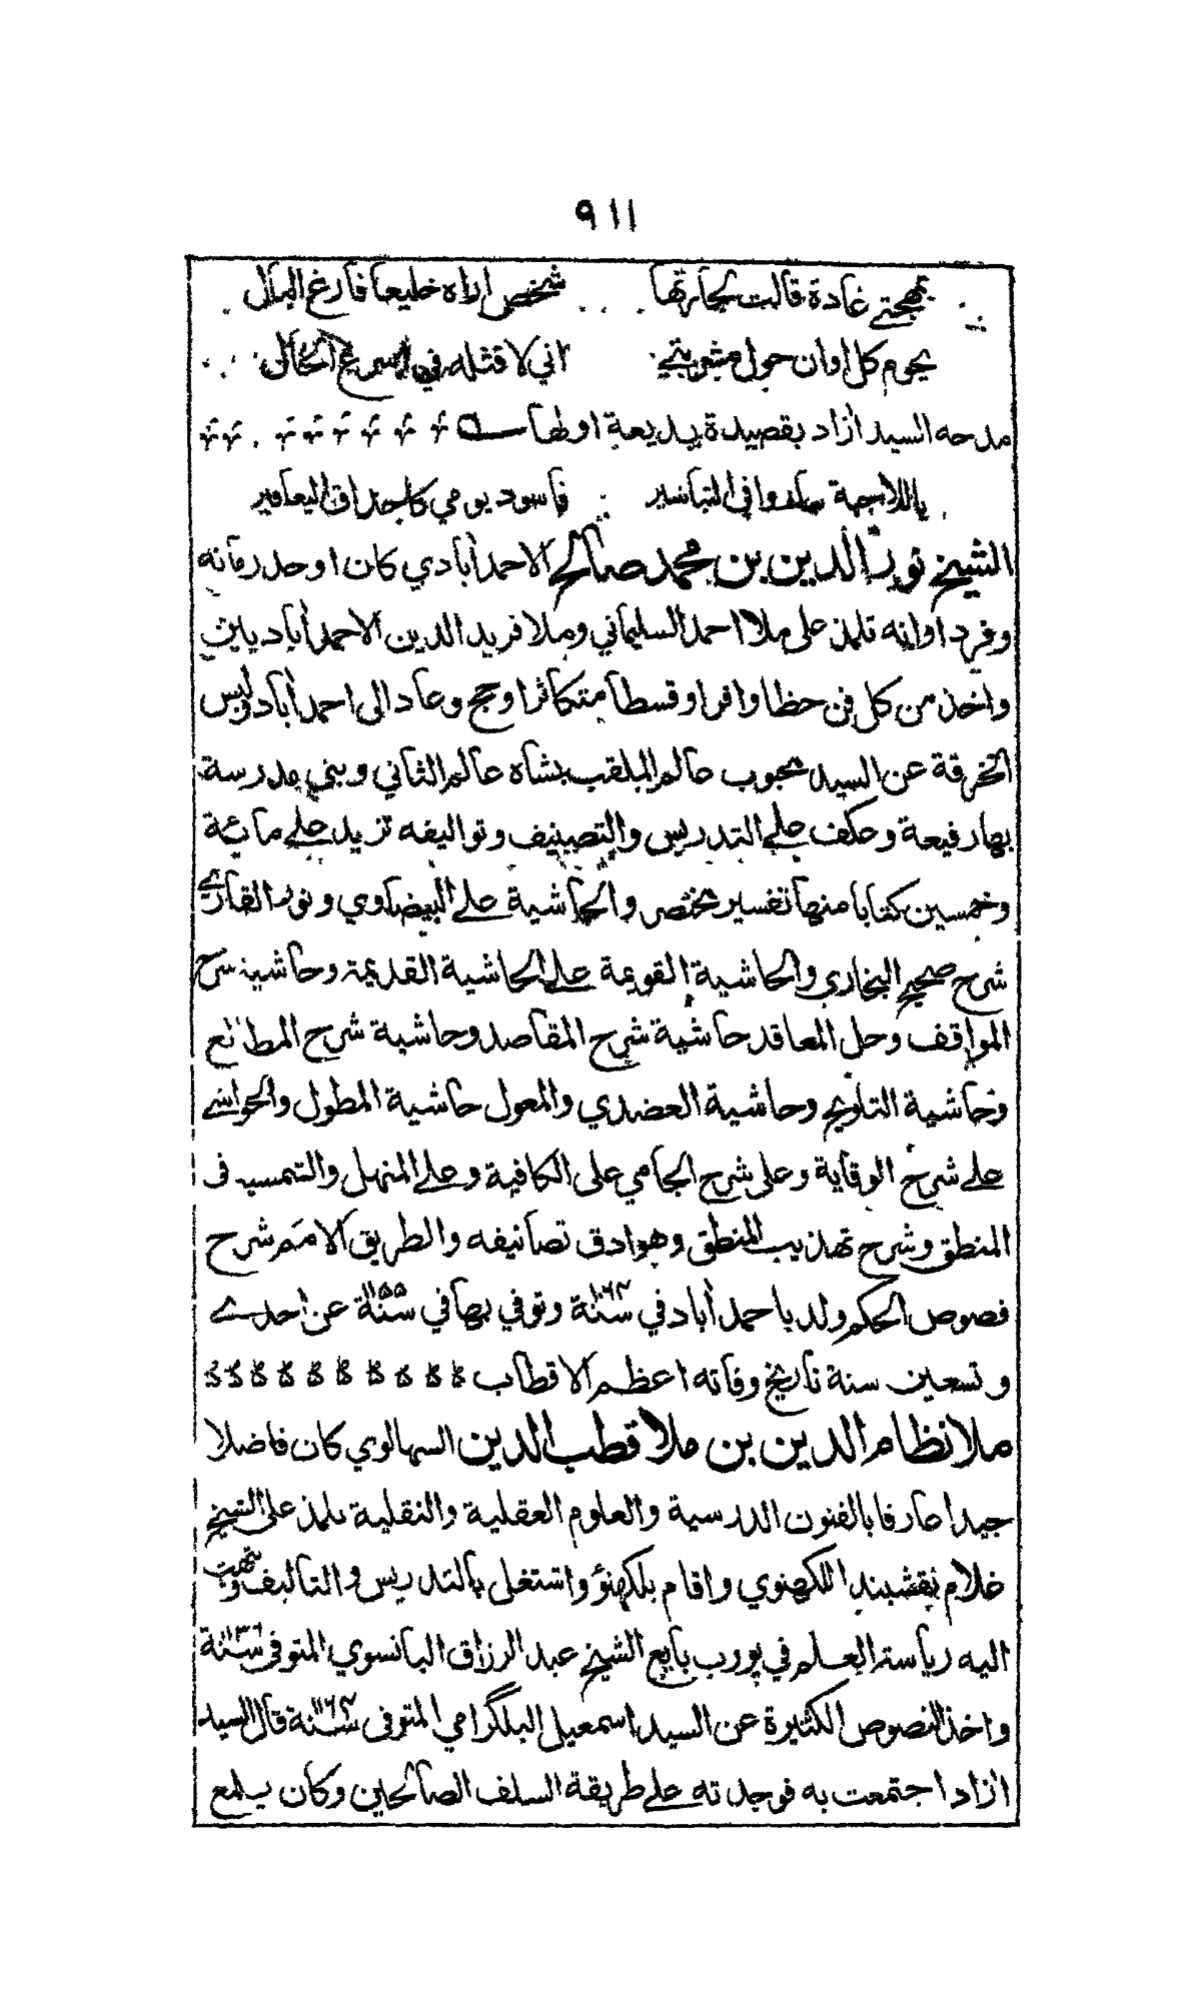 ٩١١
بمهجتي غادة قالت لجارتها شخص اراه خليعا فارغ البال
يحوم كل اوان حول مشربتي اني لا قتله في اسرع الحال
مدحه السيد ازاد بقصيدة بديعة اولها
ياللاجبة ساروا في التباشير فاسود يومي كاحداق اليعافير
الشيخ نور الدين بن محمد صالح الاحمد أبادي كان اوحد زمانه
وفرد اوانه تلمذ على ملا احمد السليماني وملا فريد الدين الاحمد أباديين
واخذ من كل فن حظا وافرا وقسطا متكاثرا وحج وعاد الى احمد أباد ولبس
الخرقة عن السيد محبوب عالم الملقب بشاه عالم الثاني وبنى مدرسة
بها رفيعة وعكف على التدريس والتصنيف وتواليفه تزيد على مائة
وخمسين كتابا منها تفسير مختصر والحاشية على البيضاوي ونور القاري
شرح صحيح البخاري والحاشية القويمة على الحاشية القديمة وحاشية شرح
المواقف وحل المعاقد حاشية شرح المقاصد وحاشية شرح المطالع
وحاشية التلويح وحاشية العضدي والمعول حاشية المطول والحواشي
على شرح الوقاية وعلى شرح الجامي على الكافية وعلى المنهل والتمسيد ف
المنطق وشرح تهذيب المنطق وهو ادق تصانيفه والطريق الامم شرح
فصوص الحكم ولد باحمد أباد في سنة ١٠٦٤ وتوفي بها في سنة ١١٥٥ عن احدى
وتسعين سنة تاريخ وفاته اعظم الاقطاب
ملا نظام الدين بن ملا قطب الدين السهالوي كان فاضلا
جيدا عارفا بالفنون الدرسية والعلوم العقلية والنقلية تلمذ على الشيخ
غلام نقشبند اللكهنوي واقام بلكهنؤ واشتغل بالتدريس والتاليف وانتهت
اليه رياسة العلم في پورب بايع الشيخ عبد الرزاق البانسوي المتوفى سنة ١١٣٦
واخذ النصوص الكثيرة عن السيد اسمعيل البلگرامي المتوفى سنة ١١٦٤ قال السيد
ازاد اجتمعت به فوجدته على طريقة السلف الصالحين وكان يلمع